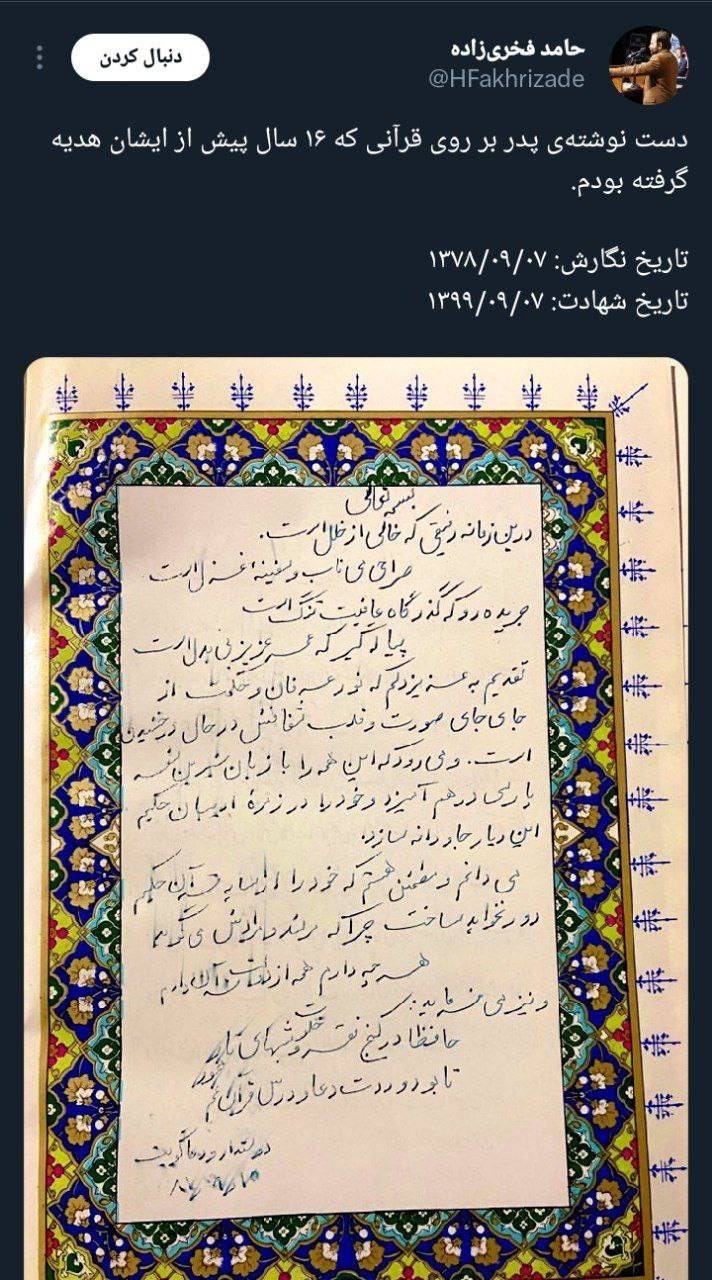 حامد فخری‌زاده
@HFakhrizade
دنبال کردن
دست نوشته‌ی پدر بر روی قرآنی که ۱۶ سال پیش از ایشان هدیه
گرفته بودم.
تاریخ نگارش: ۱۳۷۸/۰۹/۰۷
تاریخ شهادت: ۱۳۹۹/۰۹/۰۷
بسمه تعالی
درین زمانه رفیقی که خالی از خلل است.
صراحی می ناب و سفینه غزل است
جریده رو که گذرگاه عافیت تنگ است
پیاله گیر که عمر عزیز بی بدل است
تقدیم به عزیز دلم که نور عرفان و حکمت از
جای جای صورت و قلب شفافش در حال درخشیدن
است. و می‌رود که این همه را با زبان شیرین
پارسی در هم آمیزد و خود را در زمرهٔ ادیبان حکیم
این دیار جاودانه سازد.
می دانم و مطمئن هستم که خود را از سایه قرآن حکیم
دور نخواهد ساخت چرا که
هر چه دارم همه از دولت قرآن دارم
و نیز می فرماید:
حافظا در کنج فقر و خلوت شبهای تار
تا بود وردت دعا و درس قرآن غم مخور
دوستدار و دعاگویت